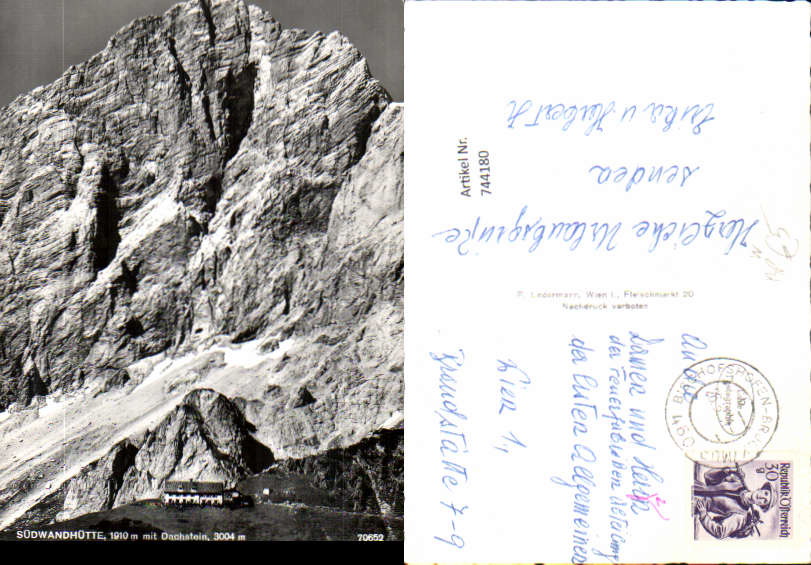 SÜDWANDHÜTTE, 1910 m mit Dachstein, 3004 m
70652
Artikel Nr.
744180
Herzliche Urlaubsgrüße
senden
Erika u Herbert
P. Ledermann, Wien I., Fleischmarkt 20
Nachdruck verboten
An die
Damen und Herren
der Feuer
der Ersten Allgemeinen
Wien 1,
Brandstätte 7-9
BISCHOFSHOFEN-BRUCK
Republik Österreich
30 g